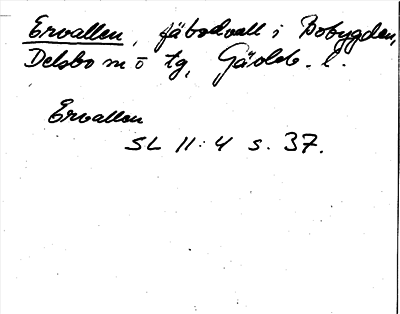 Ervallen, fäbodvall i Bobygden,
Delsbo sn o tg, Gävleb. l.
Ervallen
SL 11:4 s. 37.